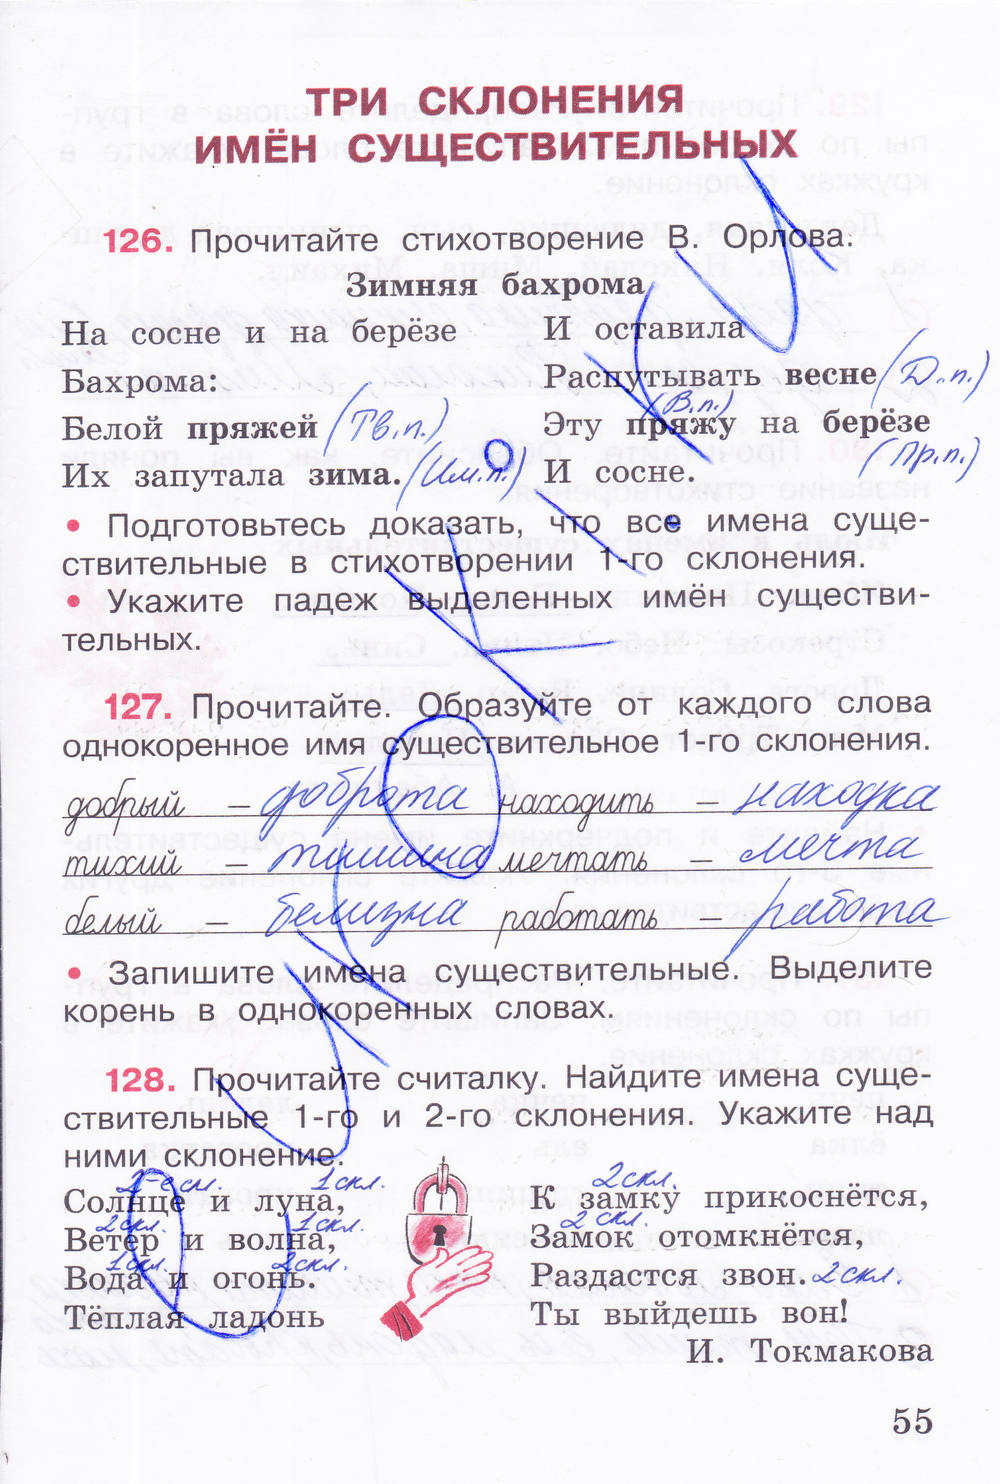 ТРИ СКЛОНЕНИЯ
ИМЁН СУЩЕСТВИТЕЛЬНЫХ
126. Прочитайте стихотворение В. Орлова:
Зимняя бахрома
На сосне и на берёзе
Бахрома:
Белой пряжей (Тв.п.)
Их запутала зима. (Им.п.)
И оставила
Распутывать весне (Д.п.)
(В.п.)
Эту пряжу на берёзе
(Пр.п.)
И сосне.
• Подготовьтесь доказать, что все имена суще-
ствительные в стихотворении 1-го склонения.
• Укажите падеж выделенных имён существи-
тельных.
127. Прочитайте. Образуйте от каждого слова
однокоренное имя существительное 1-го склонения.
добрый – доброта находить – находка
тихий – тишина мечтать – мечта
белый – белизна работать – работа
• Запишите имена существительные. Выделите
корень в однокоренных словах.
128. Прочитайте считалку. Найдите имена суще-
ствительные 1-го и 2-го склонения. Укажите над
ними склонение.
2-е скл. 1скл.
Солнце и луна,
2скл. 1скл.
Ветер и волна,
1скл. 2скл.
Вода и огонь.
Тёплая ладонь
2скл.
К замку прикоснётся,
2скл.
Замок отомкнётся,
Раздастся звон. 2скл.
Ты выйдешь вон!
И. Токмакова
55